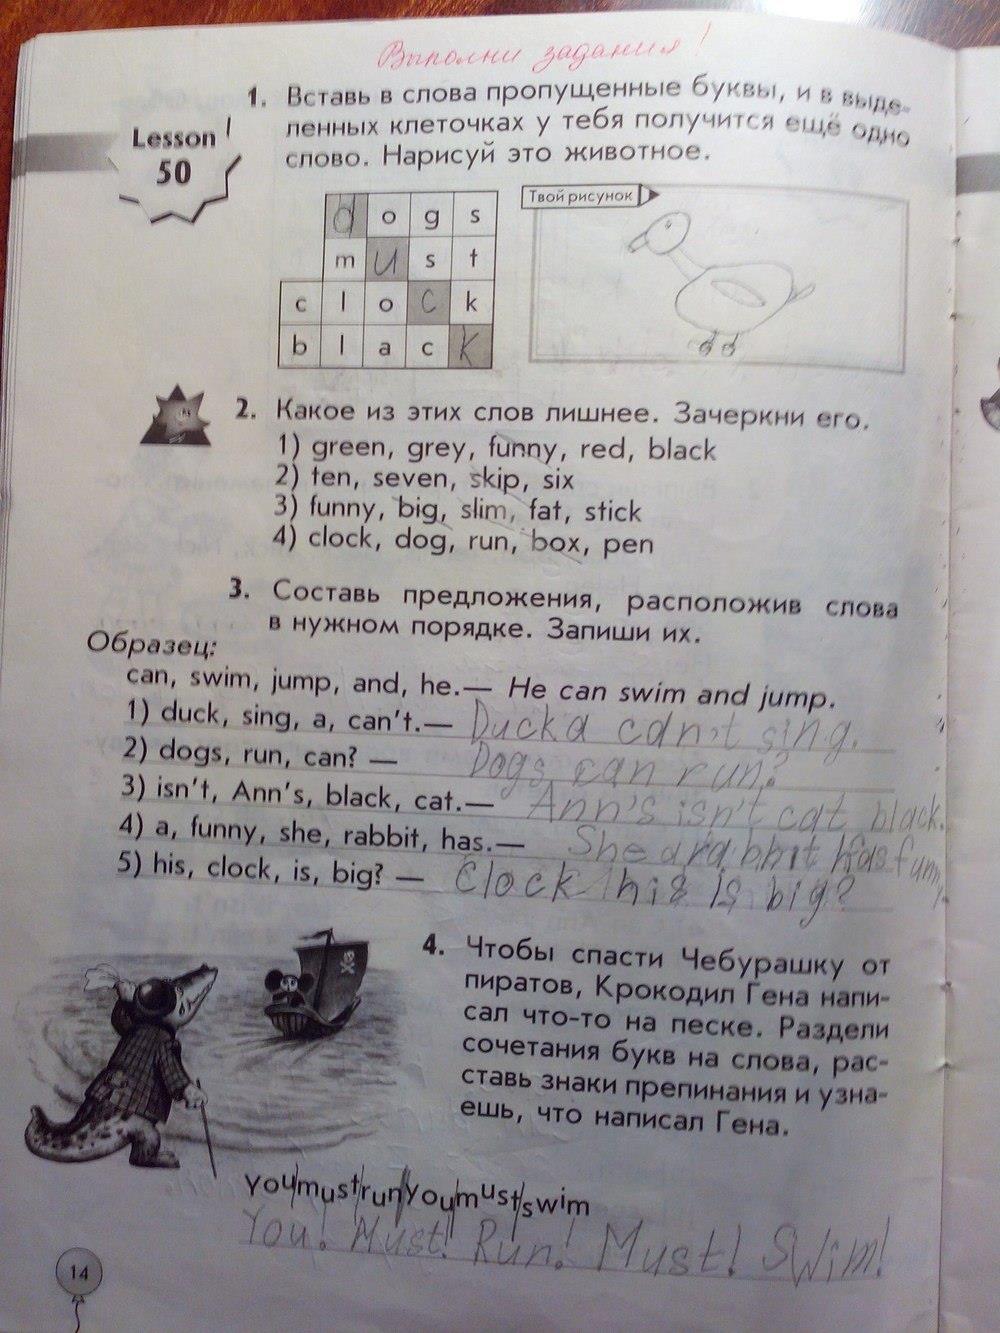 Выполни задания!
Lesson
50
1. Вставь в слова пропущенные буквы, и в выде-
ленных клеточках у тебя получится ещё одно
слово. Нарисуй это животное.
d o g s
m u s t
c l o c k
b l a c k
Твой рисунок
2. Какое из этих слов лишнее. Зачеркни его.
1) green, grey, funny, red, black
2) ten, seven, skip, six
3) funny, big, slim, fat, stick
4) clock, dog, run, box, pen
3. Составь предложения, расположив слова
в нужном порядке. Запиши их.
Образец:
can, swim, jump, and, he.— He can swim and jump.
1) duck, sing, a, can't.— Duck a can't sing.
2) dogs, run, can? — Dogs can run?
3) isn't, Ann's, black, cat.— Ann's isn't cat black.
4) a, funny, she, rabbit, has.— She a rabbit has funny.
5) his, clock, is, big? — Clock his is big?
4. Чтобы спасти Чебурашку от
пиратов, Крокодил Гена напи-
сал что-то на песке. Раздели
сочетания букв на слова, рас-
ставь знаки препинания и узна-
ешь, что написал Гена.
youmustrunyoumustswim
You! Must! Run! Must! Swim!
14